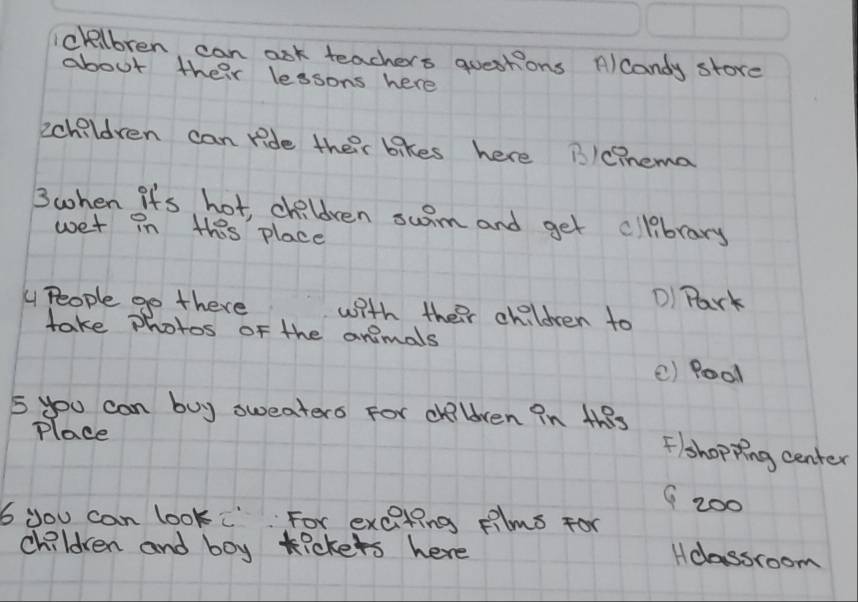 1 children can ask teachers questions A) Candy store
about their lessons here
2 children can ride their bikes here B) cinema
3 when it's hot, children swim and get c) library
wet in this place
D) Park
4 People go there with their children to
take photos of the animals
e) Pool
5 you can buy sweaters for children in this
Place
F) shopping center
G 200
6 you can look for exciting films for
children and boy tickets here
H classroom